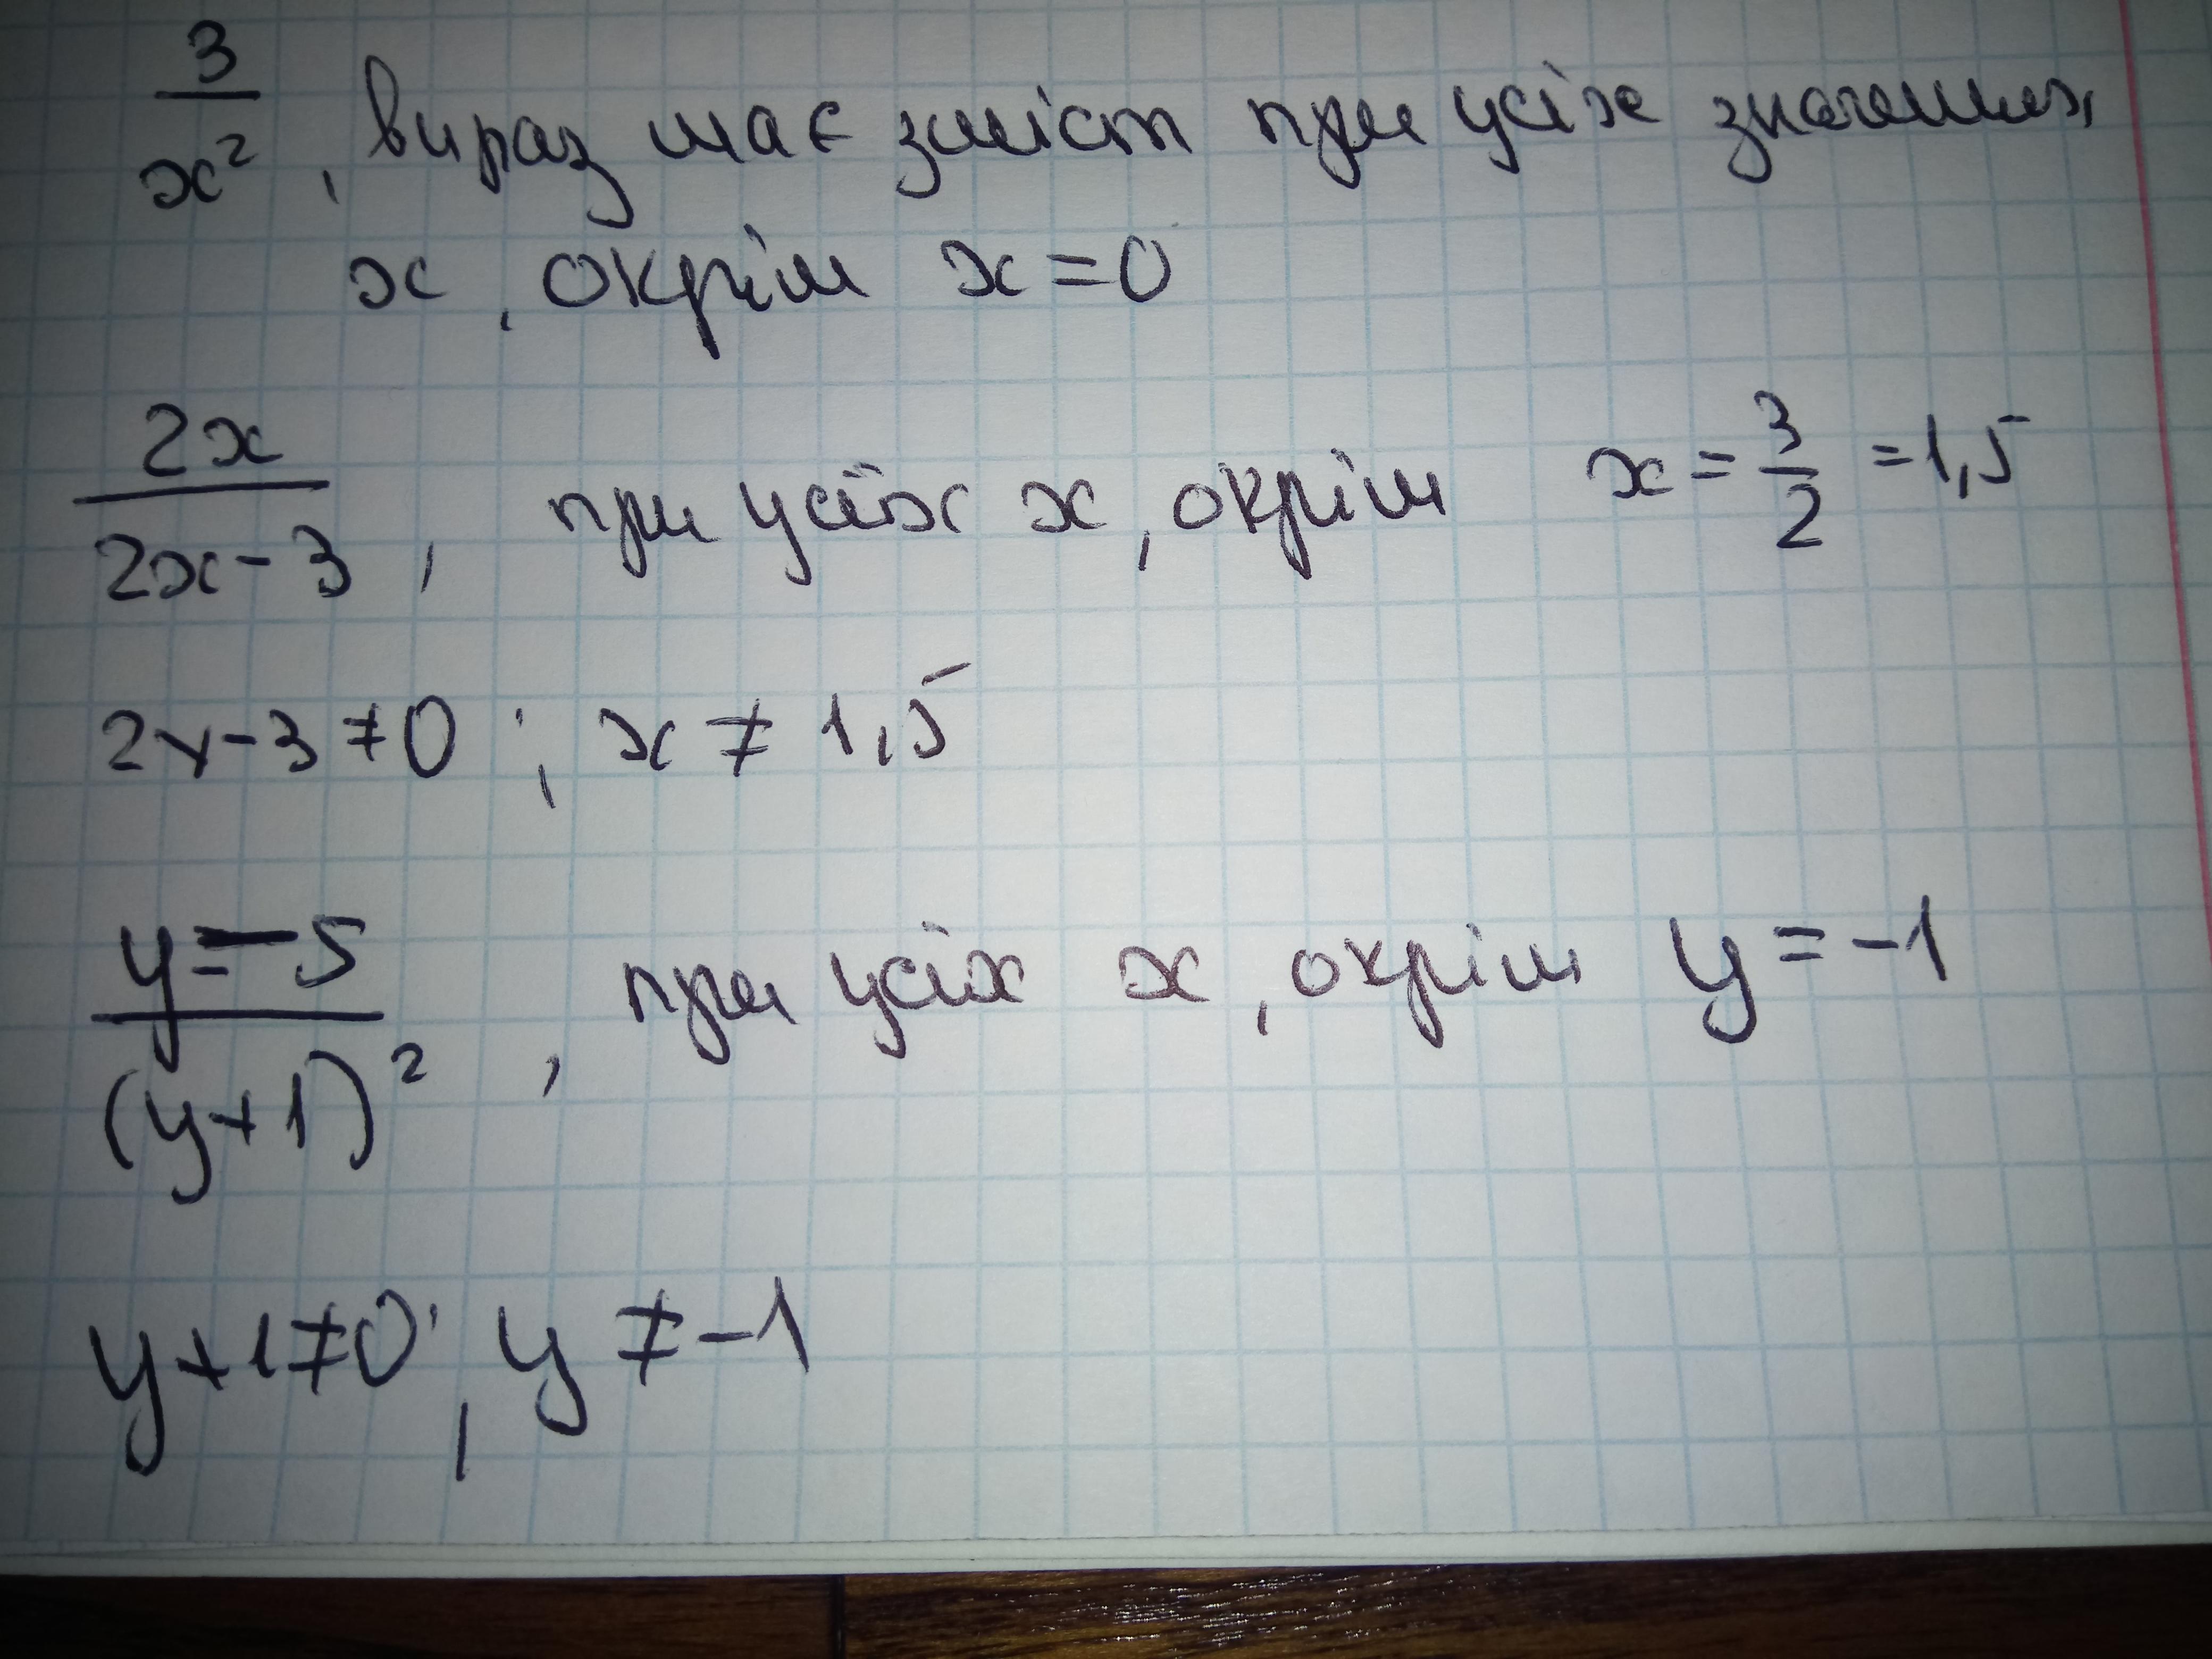 3/x², вираз має зміст при усіх значеннях
x, окрім x=0
2x/(2x-3), при усіх x, окрім x = 3/2 = 1,5
2x-3≠0; x≠1,5
y-5/(y+1)², при усіх x, окрім y=-1
y+1≠0; y≠-1